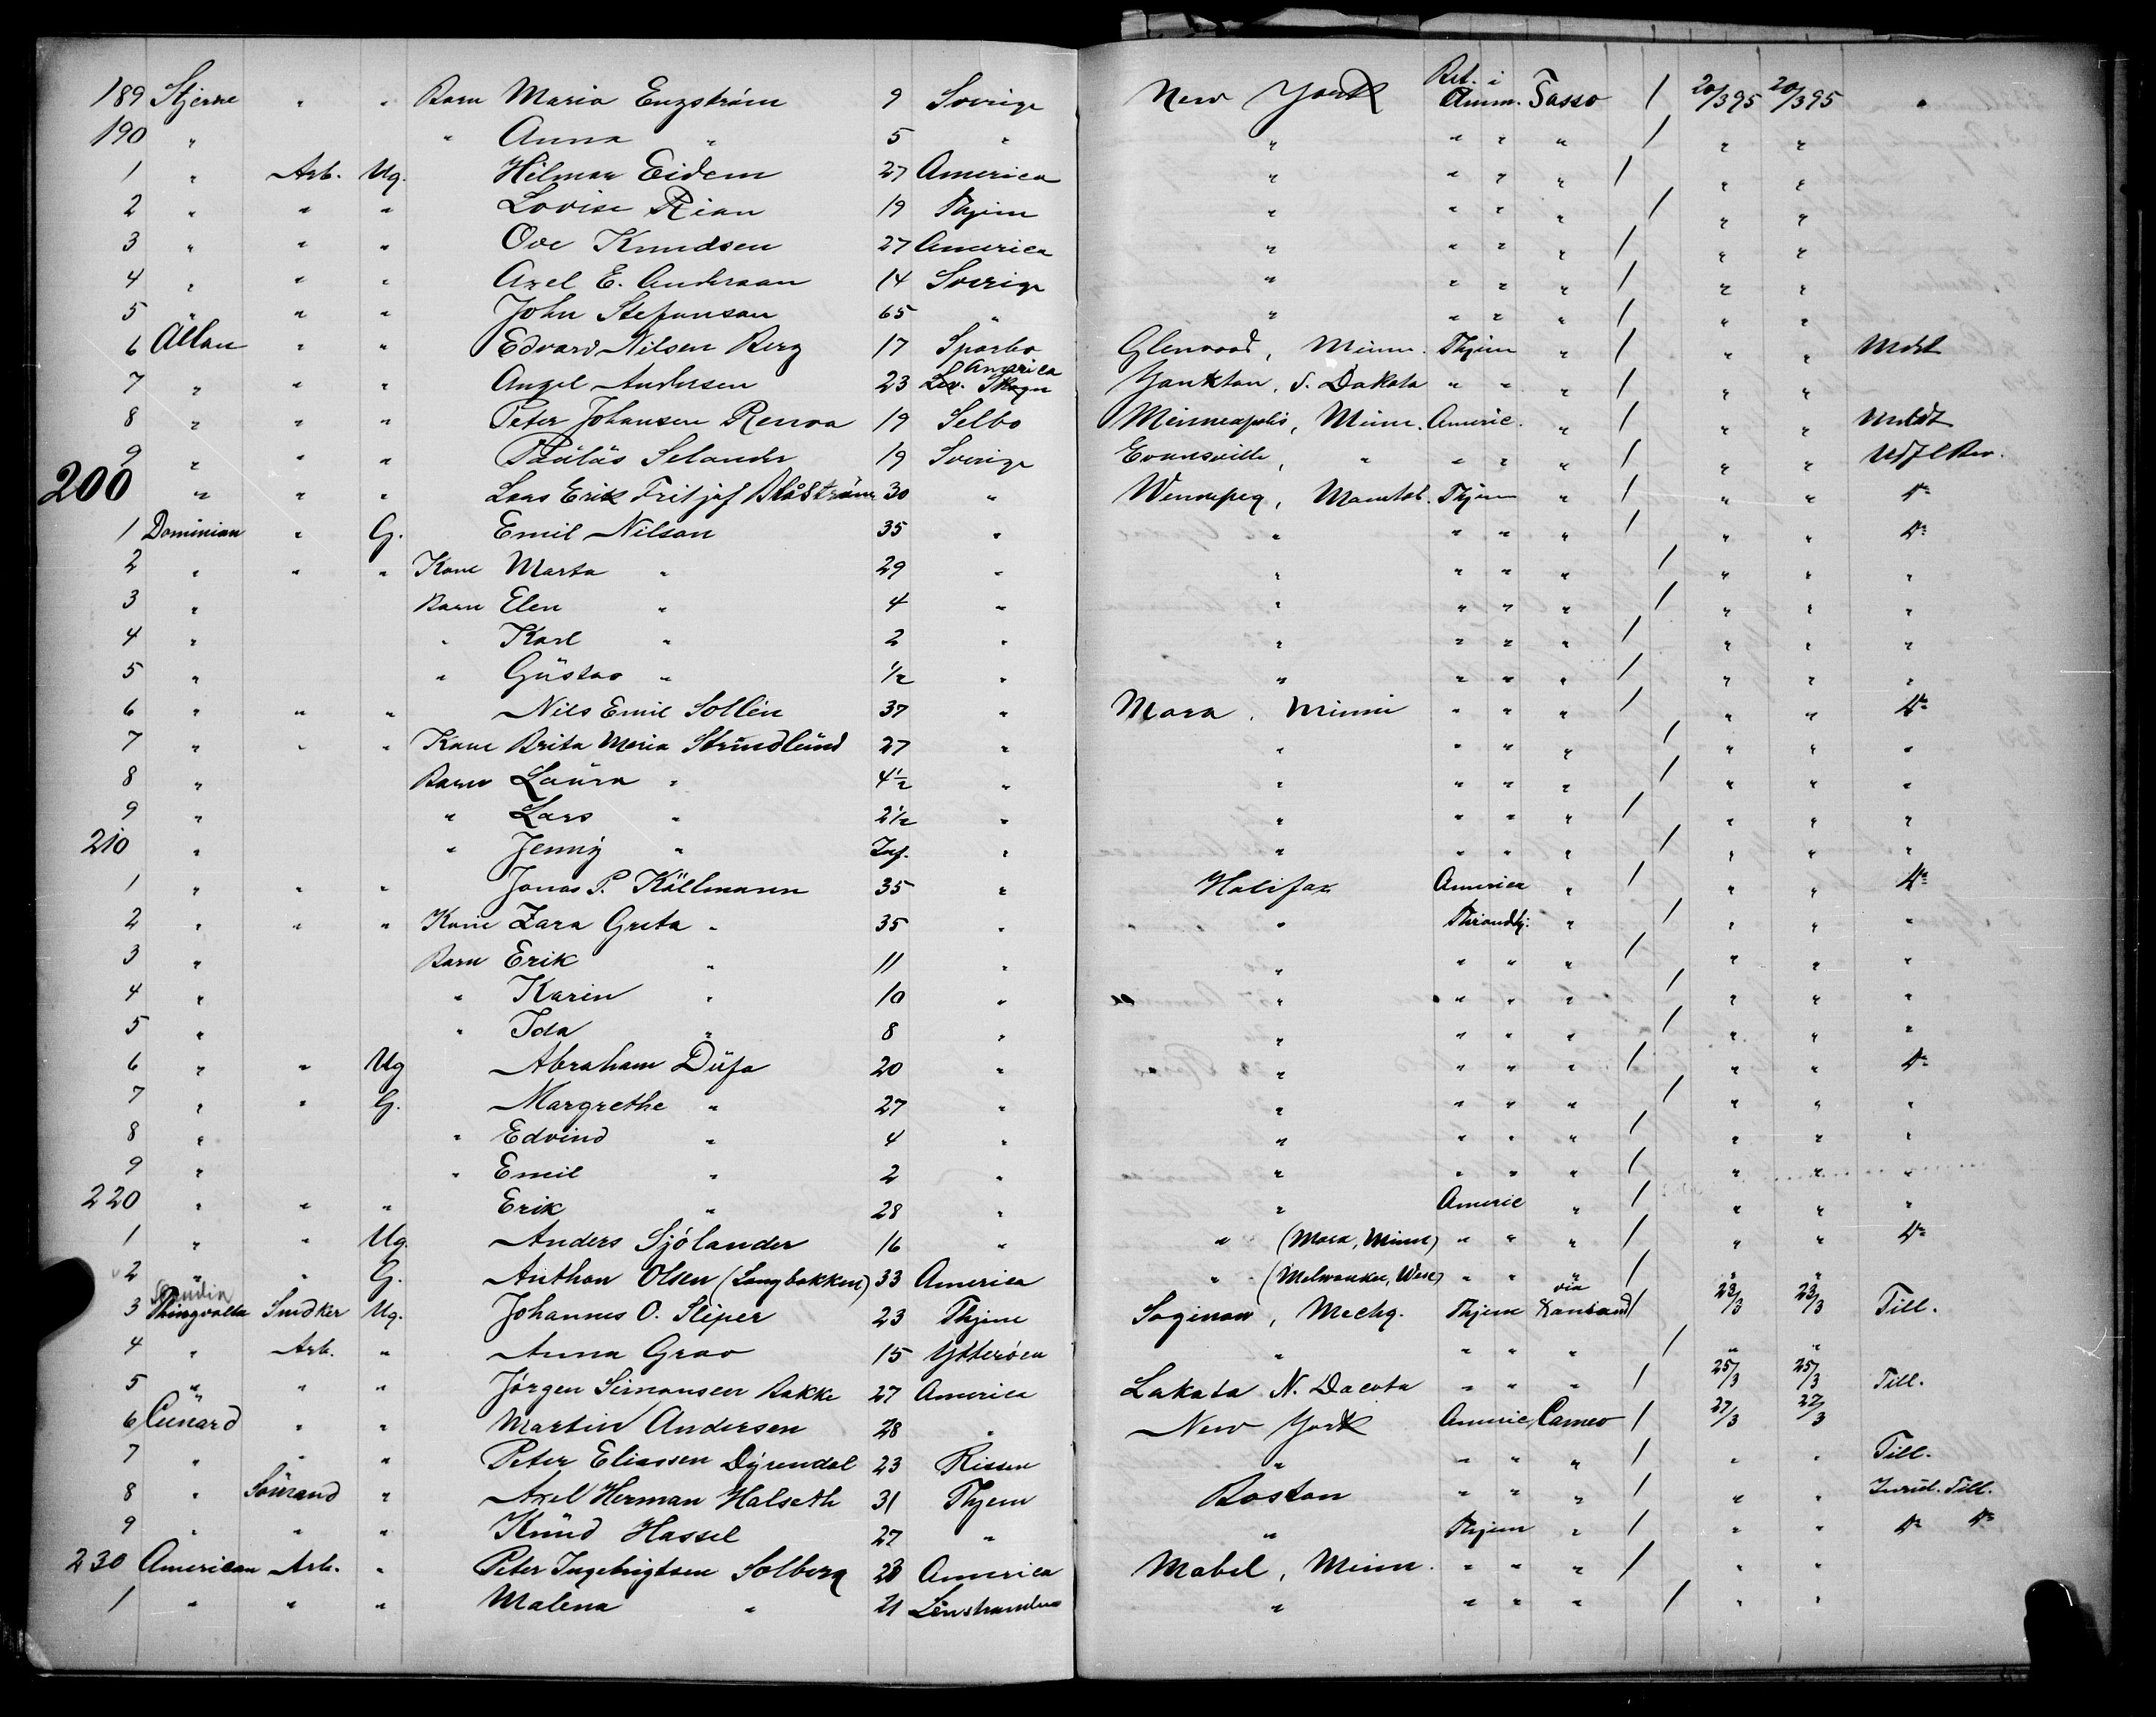 189 Stjerne " " Barn Maria Engström 9 Sverige New York Bet. i Amm. Tasso / 20/3 95 20/3 95 "
190 " " Anna " 5 " " " " " / " "
1 " Arb. Ug. Hilmar Eidem 27 America " " " " / " "
2 " " " Lovise Rian 19 Thjem " " " " / " "
3 " " " Ove Knudsen 27 America " " " " / " "
4 " " " Axel E. Andersson 14 Sverige " " " " / " "
5 " " " John Stefanson 65 " " " " " / " "
6 Allan " " Edvard Nilsen Berg 17 Sparbo Glenwood, Minn. Thjem " / " " Mdst
7 " " " Angel Andersen 23 America Yankton, S. Dakota " " " / " "
8 " " " Peter Johansen Renaa 19 Selbo Minneapolis, Minn. Americ. " / " "
9 " " " Selander 19 Sverige Evansville, " " " " / " "
200 " " " Lars Erik Fritjof Blåström 30 " Winnepeg, Thjem " / " " do
1 Dominian " G. Emil Nilson 35 " " " " " / " " do
2 " " " Kone Marta " 29 " " " " " / " " "
3 " Barn Elen " 4 " " " " " / " " "
4 " " Karl " 2 " " " " " / " " "
5 " " Gustav " 1/2 " " " " " / " " "
6 " " " Nils Emil Sollén 37 " Mora, Minni " " " / " " do
7 " " " Kone Brita Maria Strindlund 27 " " " " " / " " "
8 " Barn Laura " 4 1/2 " " " " " / " " "
9 " " Lars " 2 1/2 " " " " " / " " "
210 " " Jenny " Inf. " " " " " / " " "
1 " " " Jonas P. Källmann 35 " Halifax America " / " " do
2 " " " Kone Zara Greta " 35 " " Throndhj: " / " " "
3 " Barn Erik " 11 " " " " " / " " "
4 " " Karin " 10 " " " " " / " " "
5 " " Ida " 8 " " " " " / " " "
6 " " Ug Abraham Dufa 20 " " " " " / " " do
7 " " G. Margrethe " 27 " " " " " / " " "
8 " " Edvind " 4 " " " " " / " " "
9 " " Emil " 2 " " " " " / " " "
220 " " " Erik " 28 " " Americ " / " " "
1 " " Ug. Anders Sjölander 16 " " (Mora, Minn) " " " / " " do
2 " " G. Anthon Olsen (Langbakken) 33 America " (Melwaukee, Wisc) " " " / " "
3 Thingvalla Smdker Ug. Johannes O. Sliper 23 Thjem Saginaw, Mechg. Thjem via Xansand / 23/3 23/3 Till.
4 " Arb. " Anna Grav 15 Ytteröen " " " " / " "
5 " " " Jörgen Simonsen Bakke 27 America Lakota N. Dacota " " " / 25/3 25/3 Till.
6 Cunard " " Martin Andersen 28 " New York Americ. Cameo / 27/3 27/3
7 " " " Peter Eliassen Dyrendal 23 Rissen " " " " / " " Till.
8 " " Axel Herman Halseth 31 Thjem Boston " " " / " " Till.
9 " " " Knud Hassel 27 " " Thjem " / " " do do
230 American Arb. " Peter Ingebrigtsen Solberg 28 America Mabel, Minn. " " " / " "
1 " " " Malena " 21 " " " " / " "